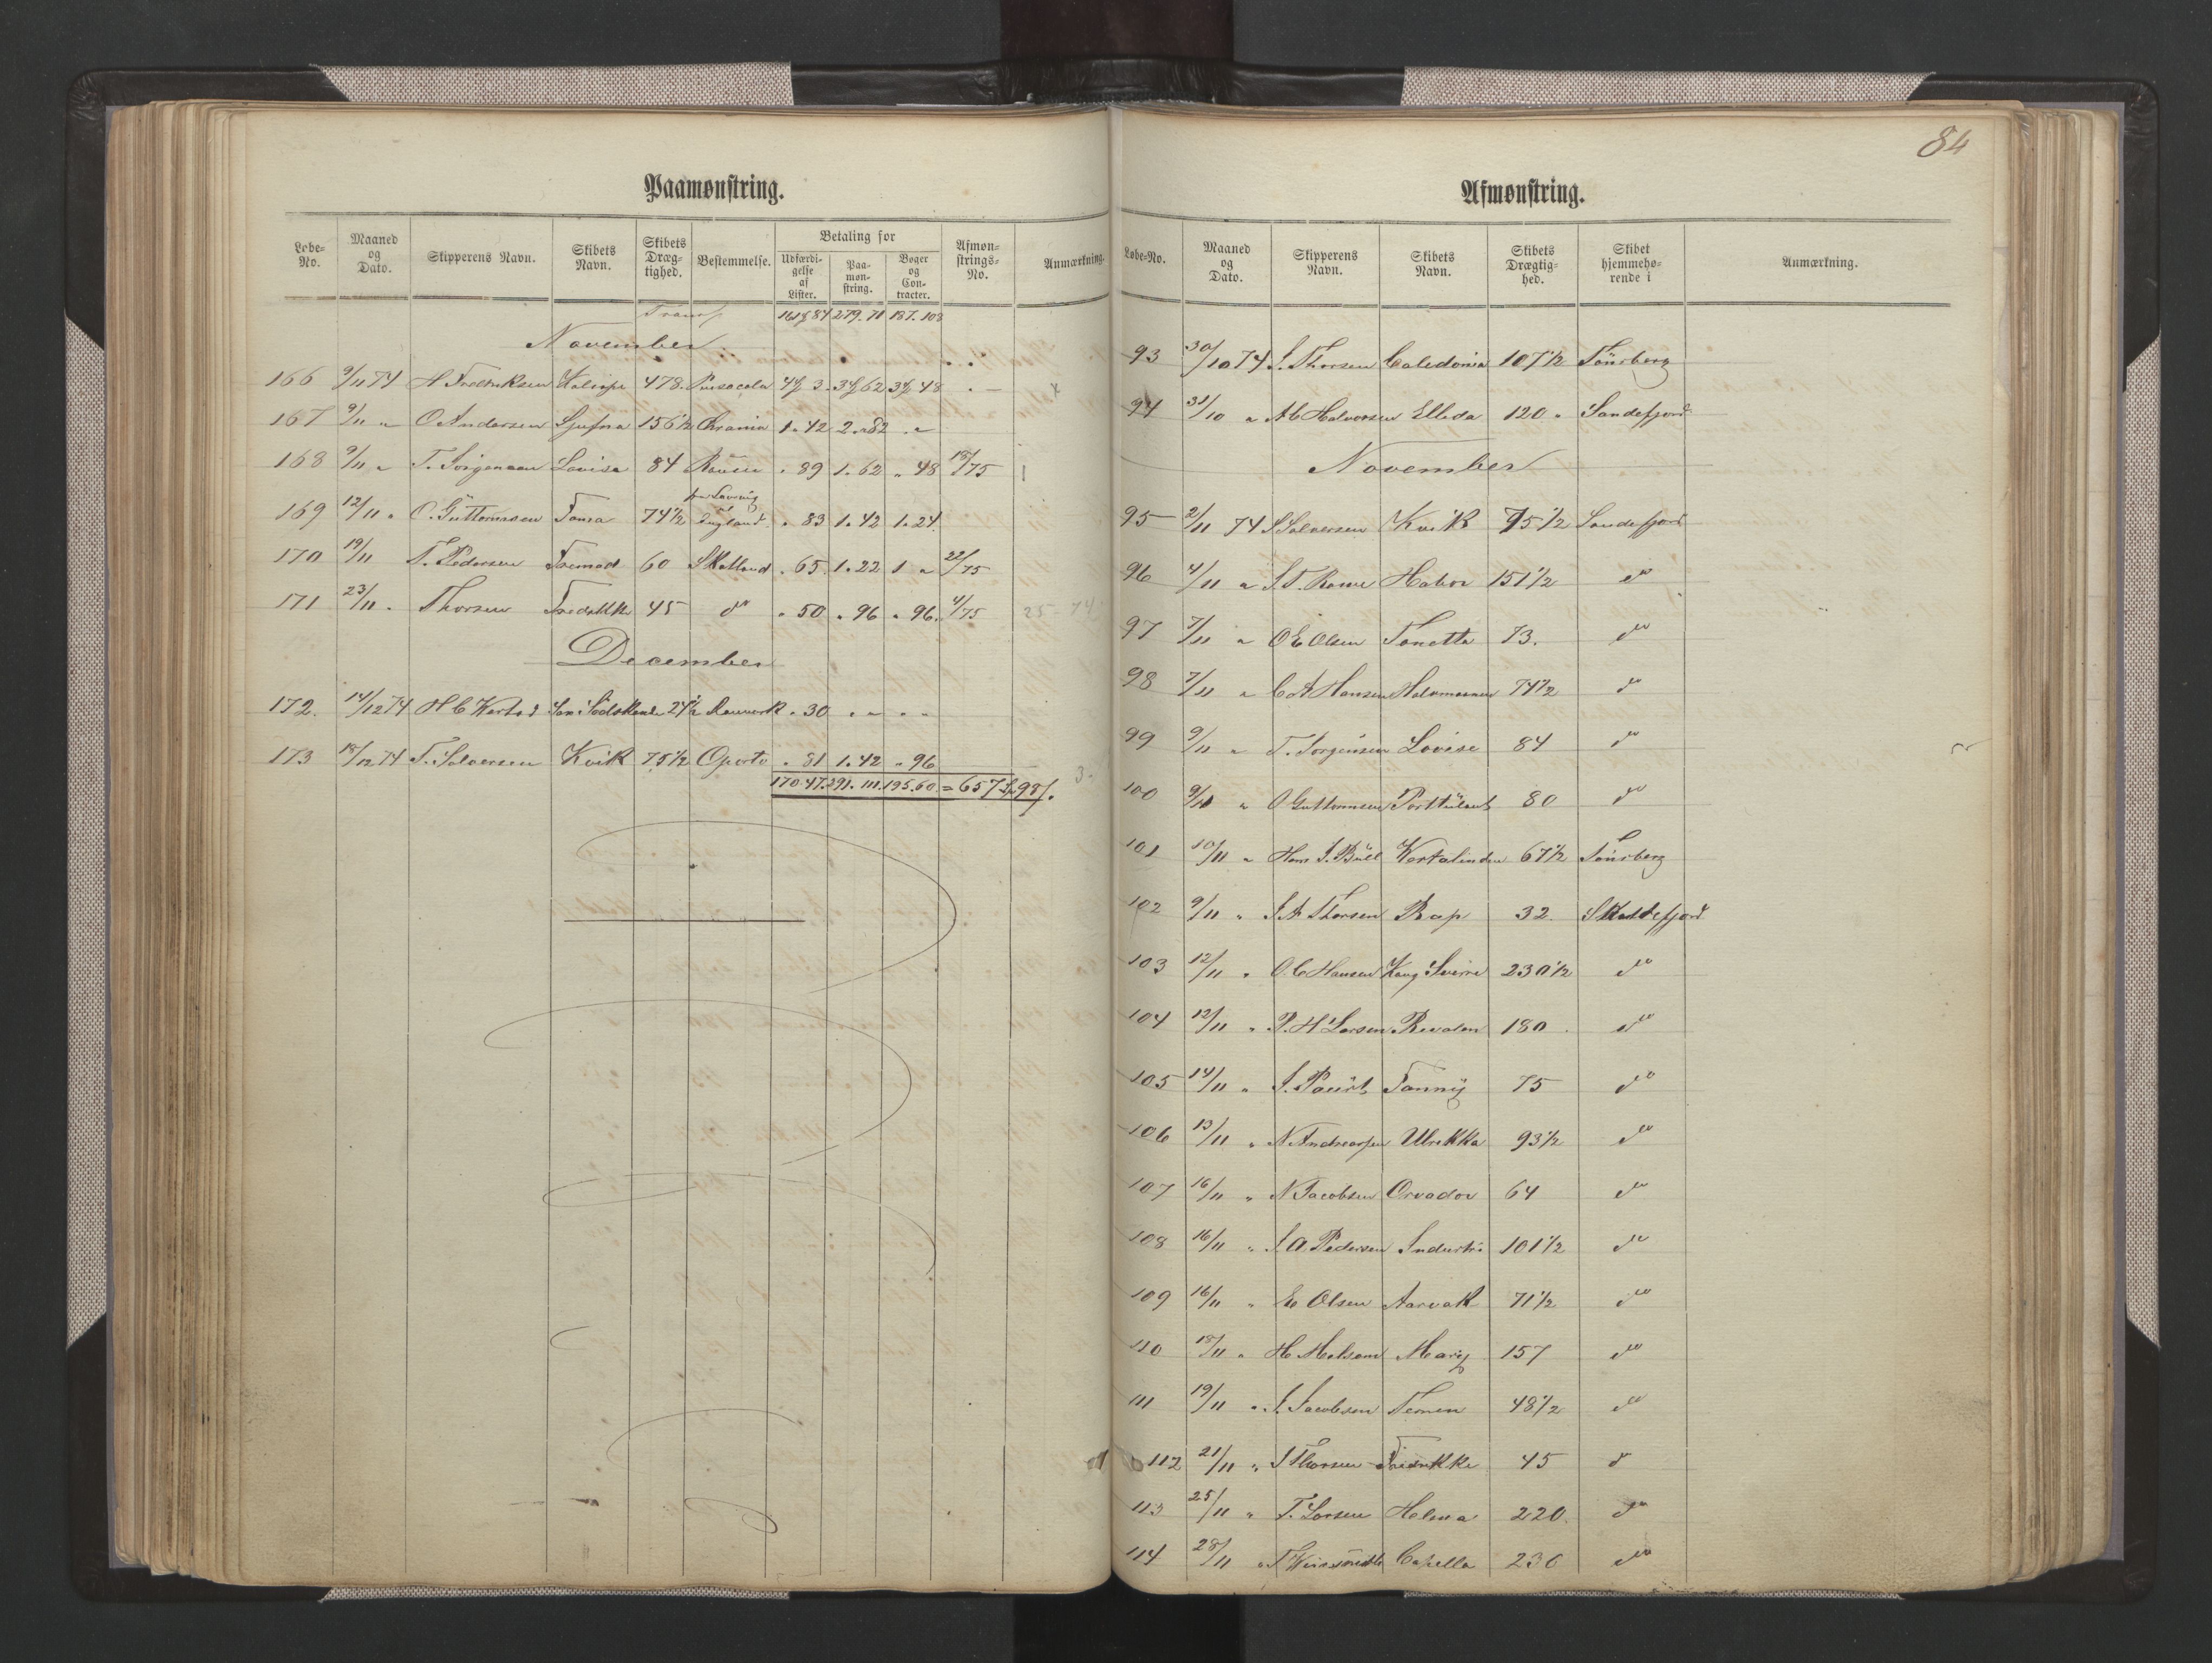 Paamønstring.
Løbe-No. Maaned og Dato. Skipperens Navn. Skibets Navn. Skibets Drægtighed. Bestemmelse. Betaling for Udfærdigelse af Lister. Paamønstring. Bøger og Contracter. Afmønstrings-No. Anmærkning.
Transp 161 84 279. 71 187. 108
November
166 9/11 74 H Fredriksen 478. Pensacola 4 3. 3 62 3 48 " –
167 9/11 " O Andersen 156 1/2 Chrania 1 " 42 2 " 82 . "
168 9/11 " T. Jørgensen Lovise 84 Rouen " 89 1 " 62 " 48 18/75
169 12/11 " O. Guttormsen 74 1/2 fra Laurvig til England " 83 1 " 42 1 " 24.
170 19/11 T. Pedersen Fremad 60 Skotland " 65. 1 " 22 1 " 22/75
171 23/11 " Thorsen Fredrikke 45 do " 50 " 96 " 96. 4/75 25 – 74
December
172. 14/12 74 H C 24 1/2 " 30 " " " "
173 18/12 74 T. Solversen Kvik 75 1/2 Oporto " 81 1 " 42 " 96
170. 47. 291. 111. 195. 60 = 657 98/.
84
Afmønstring.
Løbe-No. Maaned og Dato. Skipperens Navn. Skibets Navn. Skibets Drægtighed. Skibet hjemmehørende i Anmærkning.
93 30/10 74 S. Thorsen Caledonia 107 1/2 Tönsberg
94 31/10 " A C Halvorsen Ellida 120 " Sandefjord
November
95 2/11 74 S Solversen Kvik 75 1/2 Sandefjord
96 4/11 " S. T. 151 1/2 do
97 7/11 " O E Olsen Tonette 73. do
98 7/11 " C A Hansen 74 1/2 do
99 9/11 " T. Jorgensen Lovise 84 do
100 9/11 " O Guttormsen 80 do
101 10/11 " Hans J. Büll Kertalinden 67 1/2 Tönsberg
102 9/11 " S. A Thorsen Rap 32. Sandefjord
103 12/11 " O. C Hansen Kong Sverre 230 1/2 do
104 12/11 " P. H Larsen Revolen 180. do
105 14/11 " S. Fanny 75 do
106 13/11 " N. Andreassen Ulrikka 93 1/2 do
107 16/11 " N Jacobsen Orvador 64 do
108 16/11 " S. A. Pedersen Industri 101 1/2 do
109 16/11 " E Olsen Aarvak 71 1/2 do
110 18/11 " H Melsom Mary 157 do
111 19/11 " S. Jacobsen 48 1/2 do
112 21/11 " S Thorsen Fredrikke 45 do
113 25/11 " T. Larsen Helena 220. do
114 28/11 " Capella 230 do